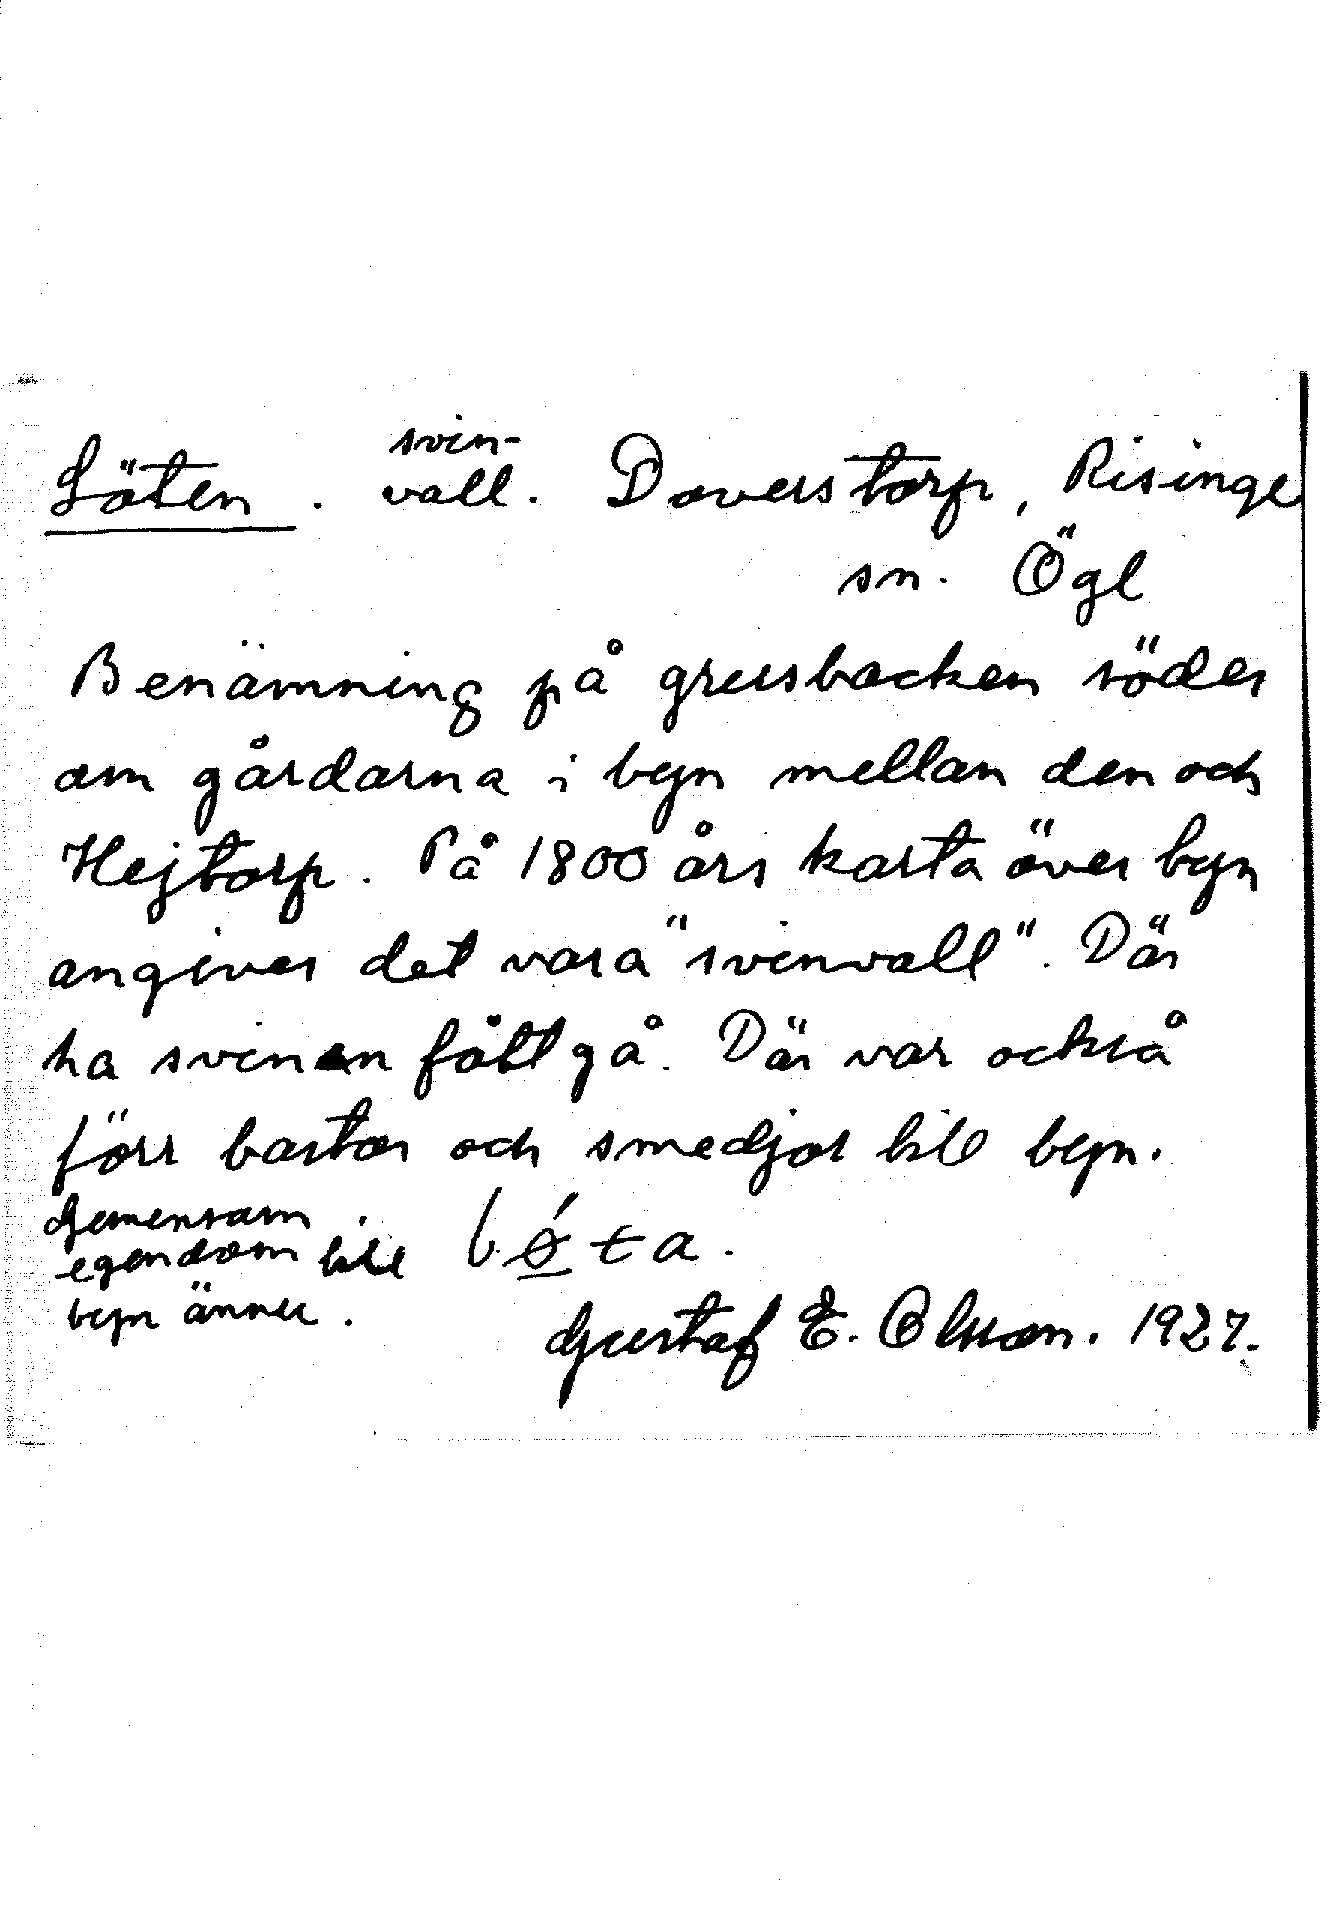 Löten. svin-
vall. Doverstorp, Risinge
sn. Ögl
Benämning på grusbacken söder
om gårdarna i byn mellan den och
Hejtorp. På 1800 års karta över byn
angives det vara "svinvall". Där
ha svinen fått gå. Där var också
förr bastor och smedjor till byn.
Gemensam
egendom till
byn ännu.
Gustaf E. Olsson. 1927.